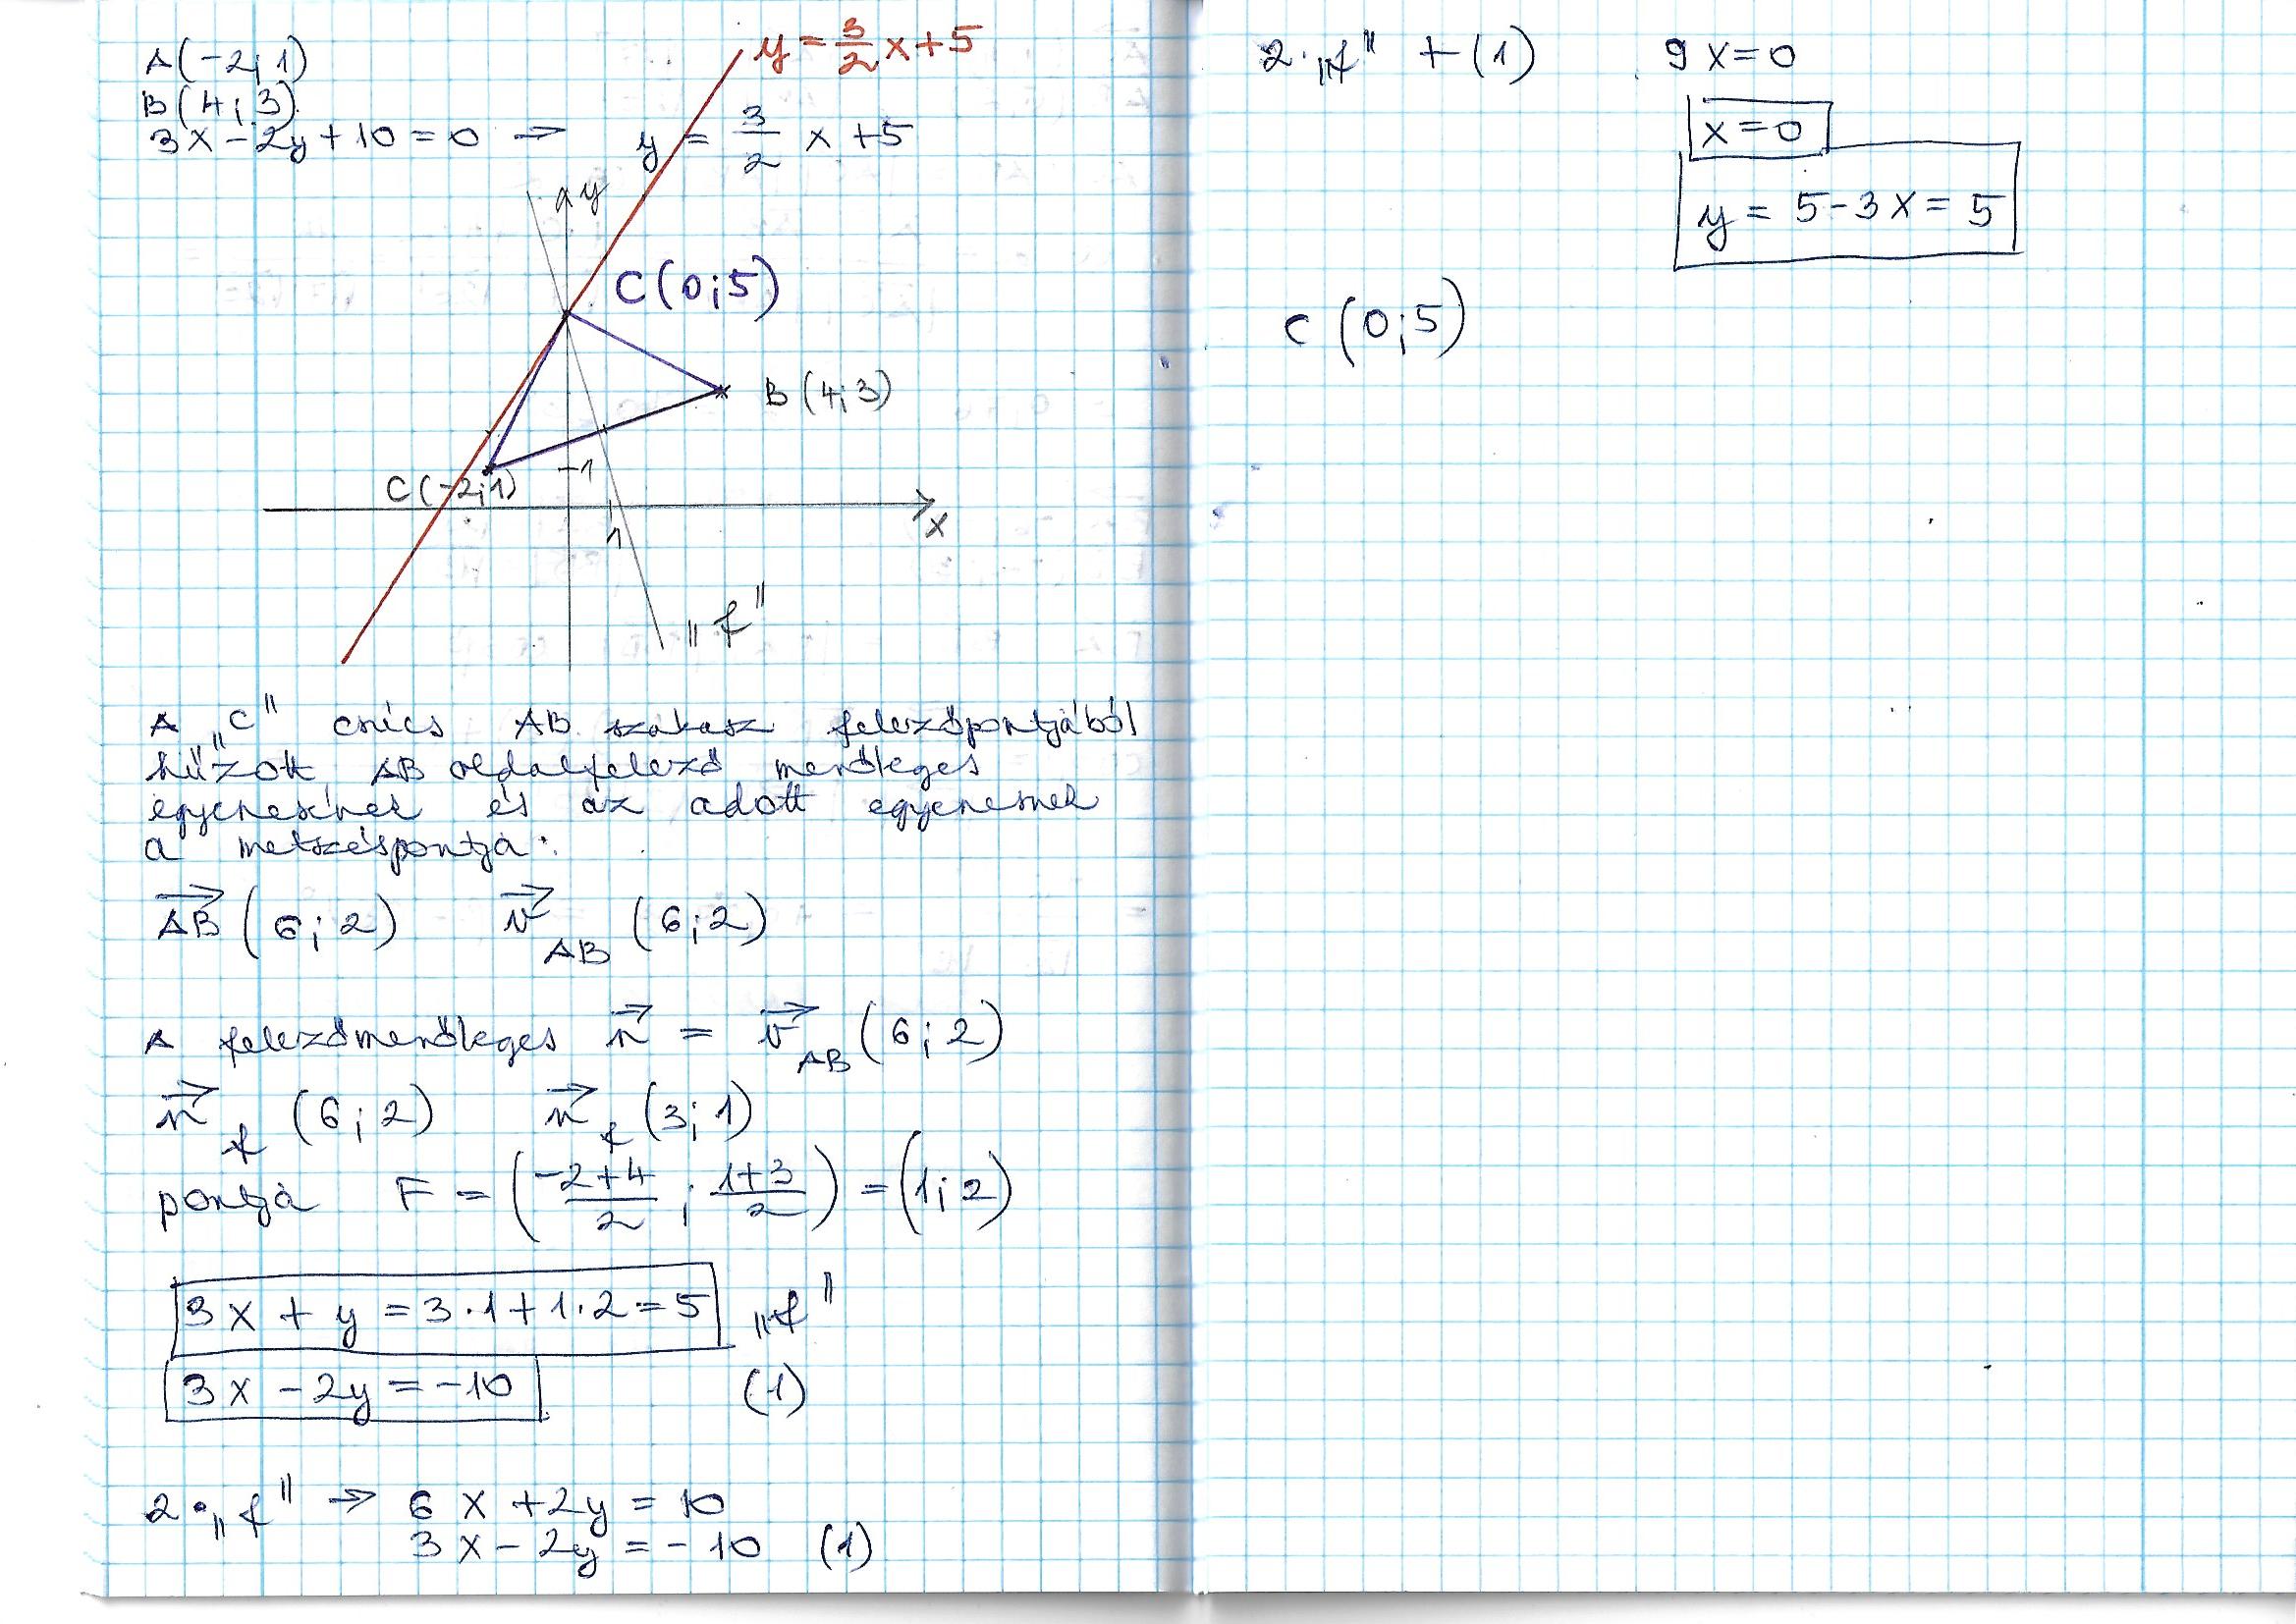 A(-2;1)
B(4;3)
3x-2y+10=0 → y = 3/2 x +5
y = 3/2 x+5
y
C(0;5)
B(4;3)
1
C(-2;1)
1
x
„f"
A „C" csúcs AB szakasz felezőpontjából
húzott AB oldalfelező merőleges
egyenesének és az adott egyenesnek
a metszéspontja.
AB→ (6;2) v→AB (6;2)
A felezőmerőleges n→ = v→AB (6;2)
n→f (6;2) n→f (3;1)
pontja F = ((-2+4)/2 ; (1+3)/2) = (1;2)
3x + y = 3·1+1·2=5 „f"
3x - 2y = -10 (1)
2·„f" → 6x +2y = 10
3x - 2y = -10 (1)
2·„f" + (1) 9x=0
x=0
y = 5-3x = 5
C (0;5)